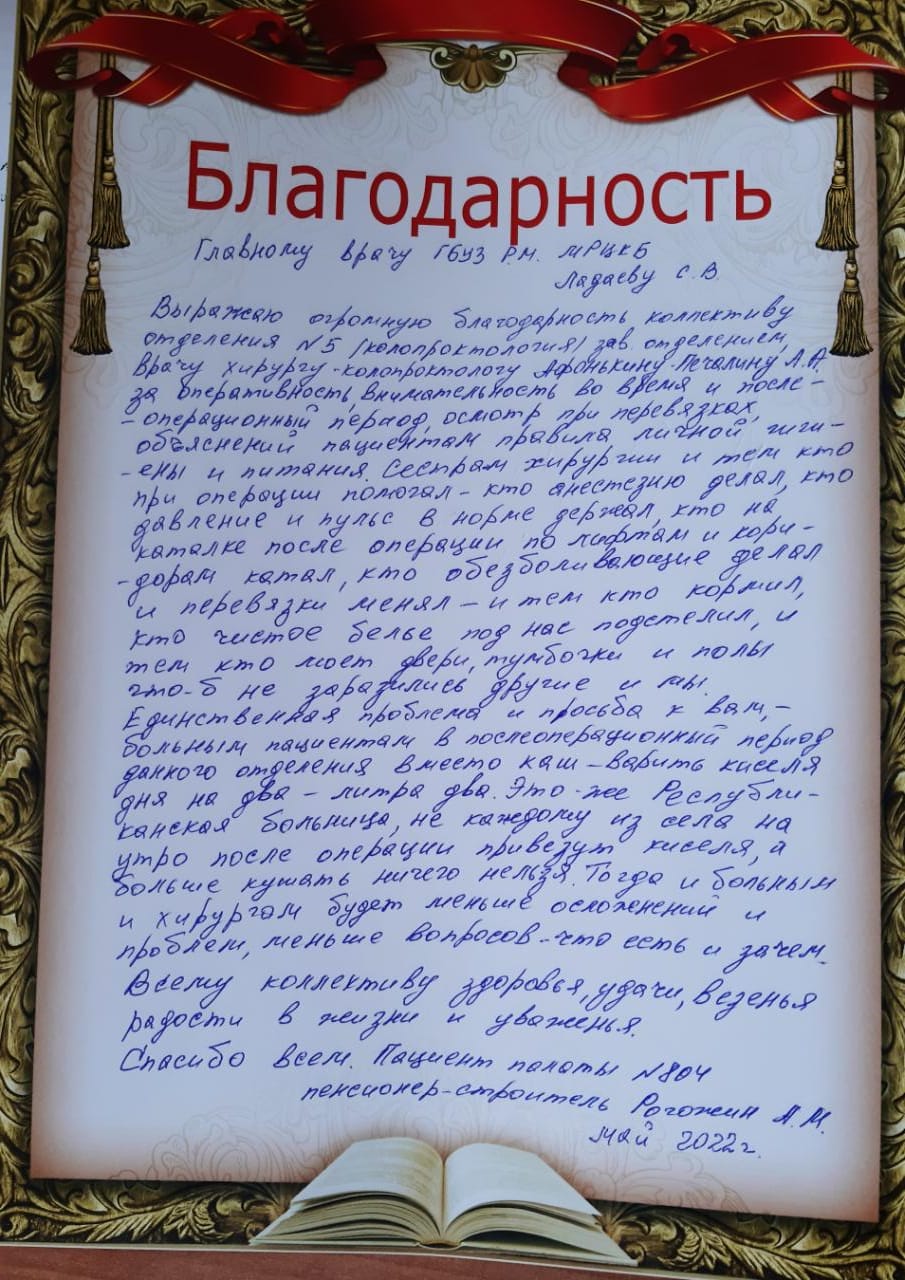 Благодарность
Главному врачу ГБУЗ Р.М. МРЦКБ
Ладаеву С.В.
Выражаю огромную благодарность коллективу
отделения №5 (колопроктология) зав. отделением,
врачу хирургу-колопроктологу Афонькину-Печалину Л.А.
за оперативность, внимательность во время и после-
-операционный период, осмотр при перевязках,
объяснений пациентам правила личной гиги-
-ены и питания. Сестрам хирургии и тем кто
при операции помогал - кто анестезию делал, кто
давление и пульс в норме держал, кто на
каталке после операции по лифтам и кори-
-дорам катал, кто обезболивающие делал
и перевязки менял - и тем кто кормил,
кто чистое белье под нас подстелил, и
тем кто моет двери, тумбочки и полы
что-б не заразились другие и мы.
Единственная проблема и просьба к вам, -
больным пациентам в послеоперационный период
данного отделения вместо каш - варить киселя
дня на два - литра два. Это-же Республи-
канская больница, не каждому из села на
утро после операции привезут киселя, а
больше кушать ничего нельзя. Тогда и больным
и хирургам будет меньше осложнений и
проблем, меньше вопросов - что есть и зачем.
Всему коллективу здоровья, удачи, везенья
радости в жизни и уваженья.
Спасибо всем. Пациент палаты №804
пенсионер-строитель Рогожин А.М.
май 2022г.